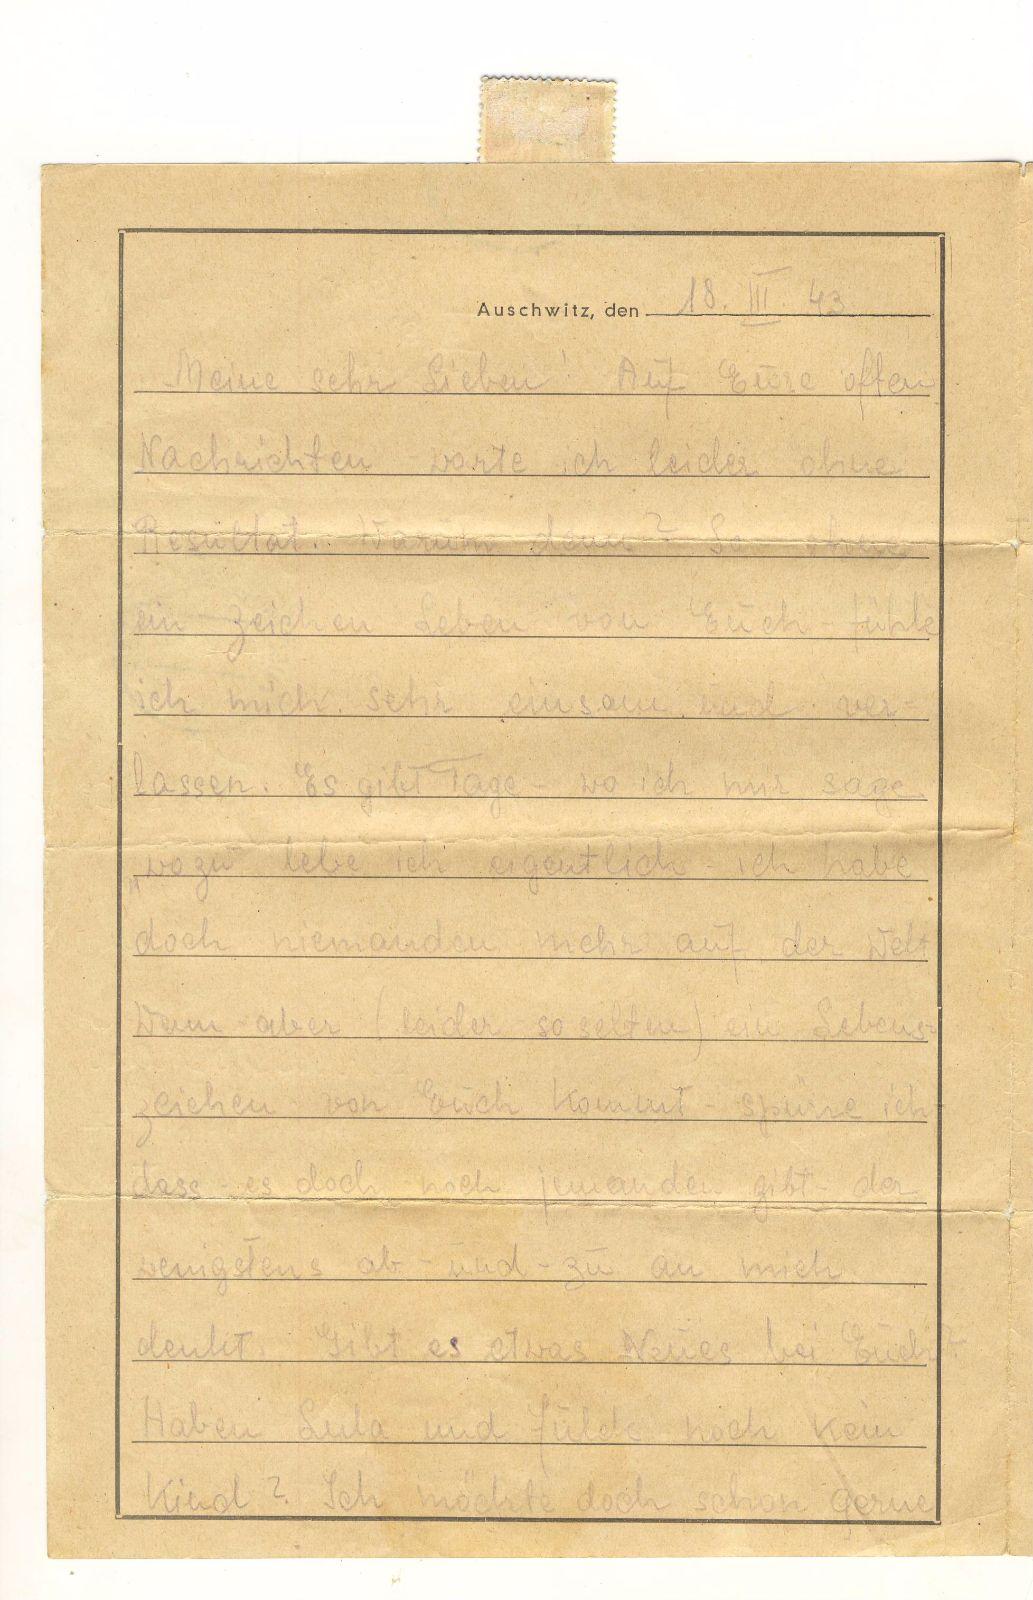 Auschwitz, den 18. III. 43
Meine sehr Lieben! Auf Eure often
Nachrichten warte ich leider ohne
Resultat. Warum denn? So ohne
ein Zeichen Leben von Euch - fühle
ich mich sehr einsam und ver-
lassen. Es gibt Tage - wo ich mir sage
„wozu lebe ich eigentlich - ich habe
doch niemanden mehr auf der Welt
Wenn aber (leider so selten) ein Lebens-
zeichen von Euch kommt - spüre ich -
dass - es doch noch jemanden gibt - der
wenigstens ab - und - zu an mich
denkt. Gibt es etwas Neues bei Euch?
Haben Lula und noch kein
Kind? Ich möchte doch schon gerne